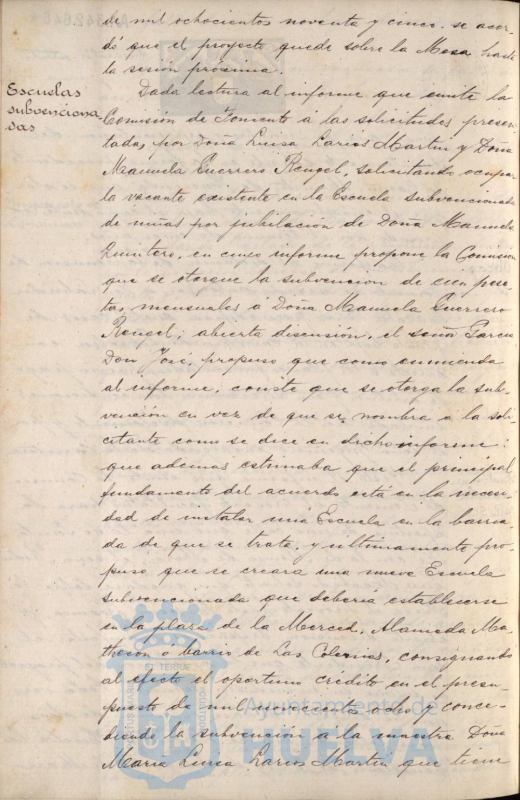 de mil ochocientos noventa y cinco. se acor-
dó que el proyecto quede sobre la Mesa hasta
la sesión próxima.
Escuelas
subvenciona
das
Dada lectura al informe que emite la
Comisión de Fomento a las solicitudes presen-
tadas, por Doña Luisa Larios Martin y Doña
Manuela Guerrero Rengel, solicitando ocupar
la vacante existente en la Escuela subvencionada
de niñas por jubilación de Doña Manuela
Quintero, en cuyo informe propone la Comisión
que se otorgue la subvencion de cien pese-
tas, mensuales á Doña Manuela Guerrero
Rengel; abierta discusión, el señor Garcia
Don José, propuso que como enmienda
al informe, conste que se otorga la sub-
vención en vez de que se nombra a la soli-
citante como se dice en dicho informe:
que ademas estimaba que el principal
fundamento del acuerdo está en la necesi-
dad de instalar una Escuela en la barria-
da de que se trata, y ultimamente pro-
puso que se creara una nueva Escuela
subvencionada que debería establecerse
en la plaza de la Merced, Alameda Ma-
theson ó barrio de Las Colonias, consignando
al efecto el oportuno crédito en el presu-
puesto de mil novecientos ocho y conce-
diendo la subvención a la maestra Doña
Maria Luisa Larios Martin que tiene
Ayuntamiento de
HUELVA